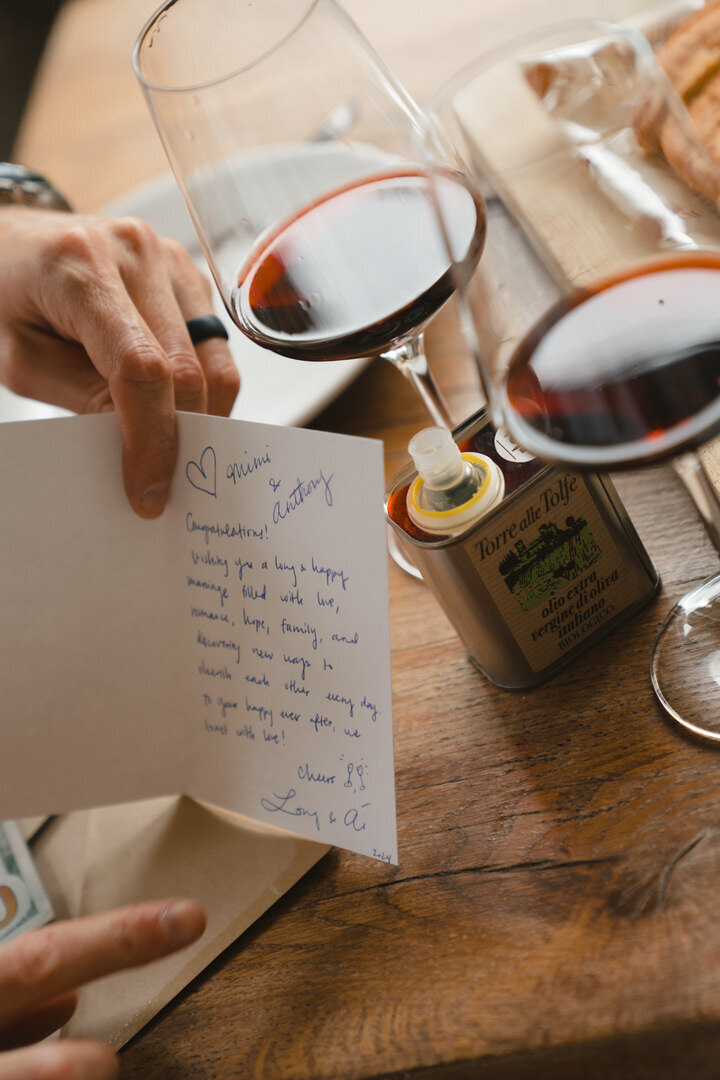 mimi
&
Anthony
Congratulations!
Wishing you a long & happy
marriage filled with love,
romance, hope, family, and
discovering new ways to
cherish each other every day
to your happy ever after, we
toast with love!
cheers
Long & Ái
2024
Torre alle Tolfe
olio extra
vergine di oliva
italiano
BIOLOGICO